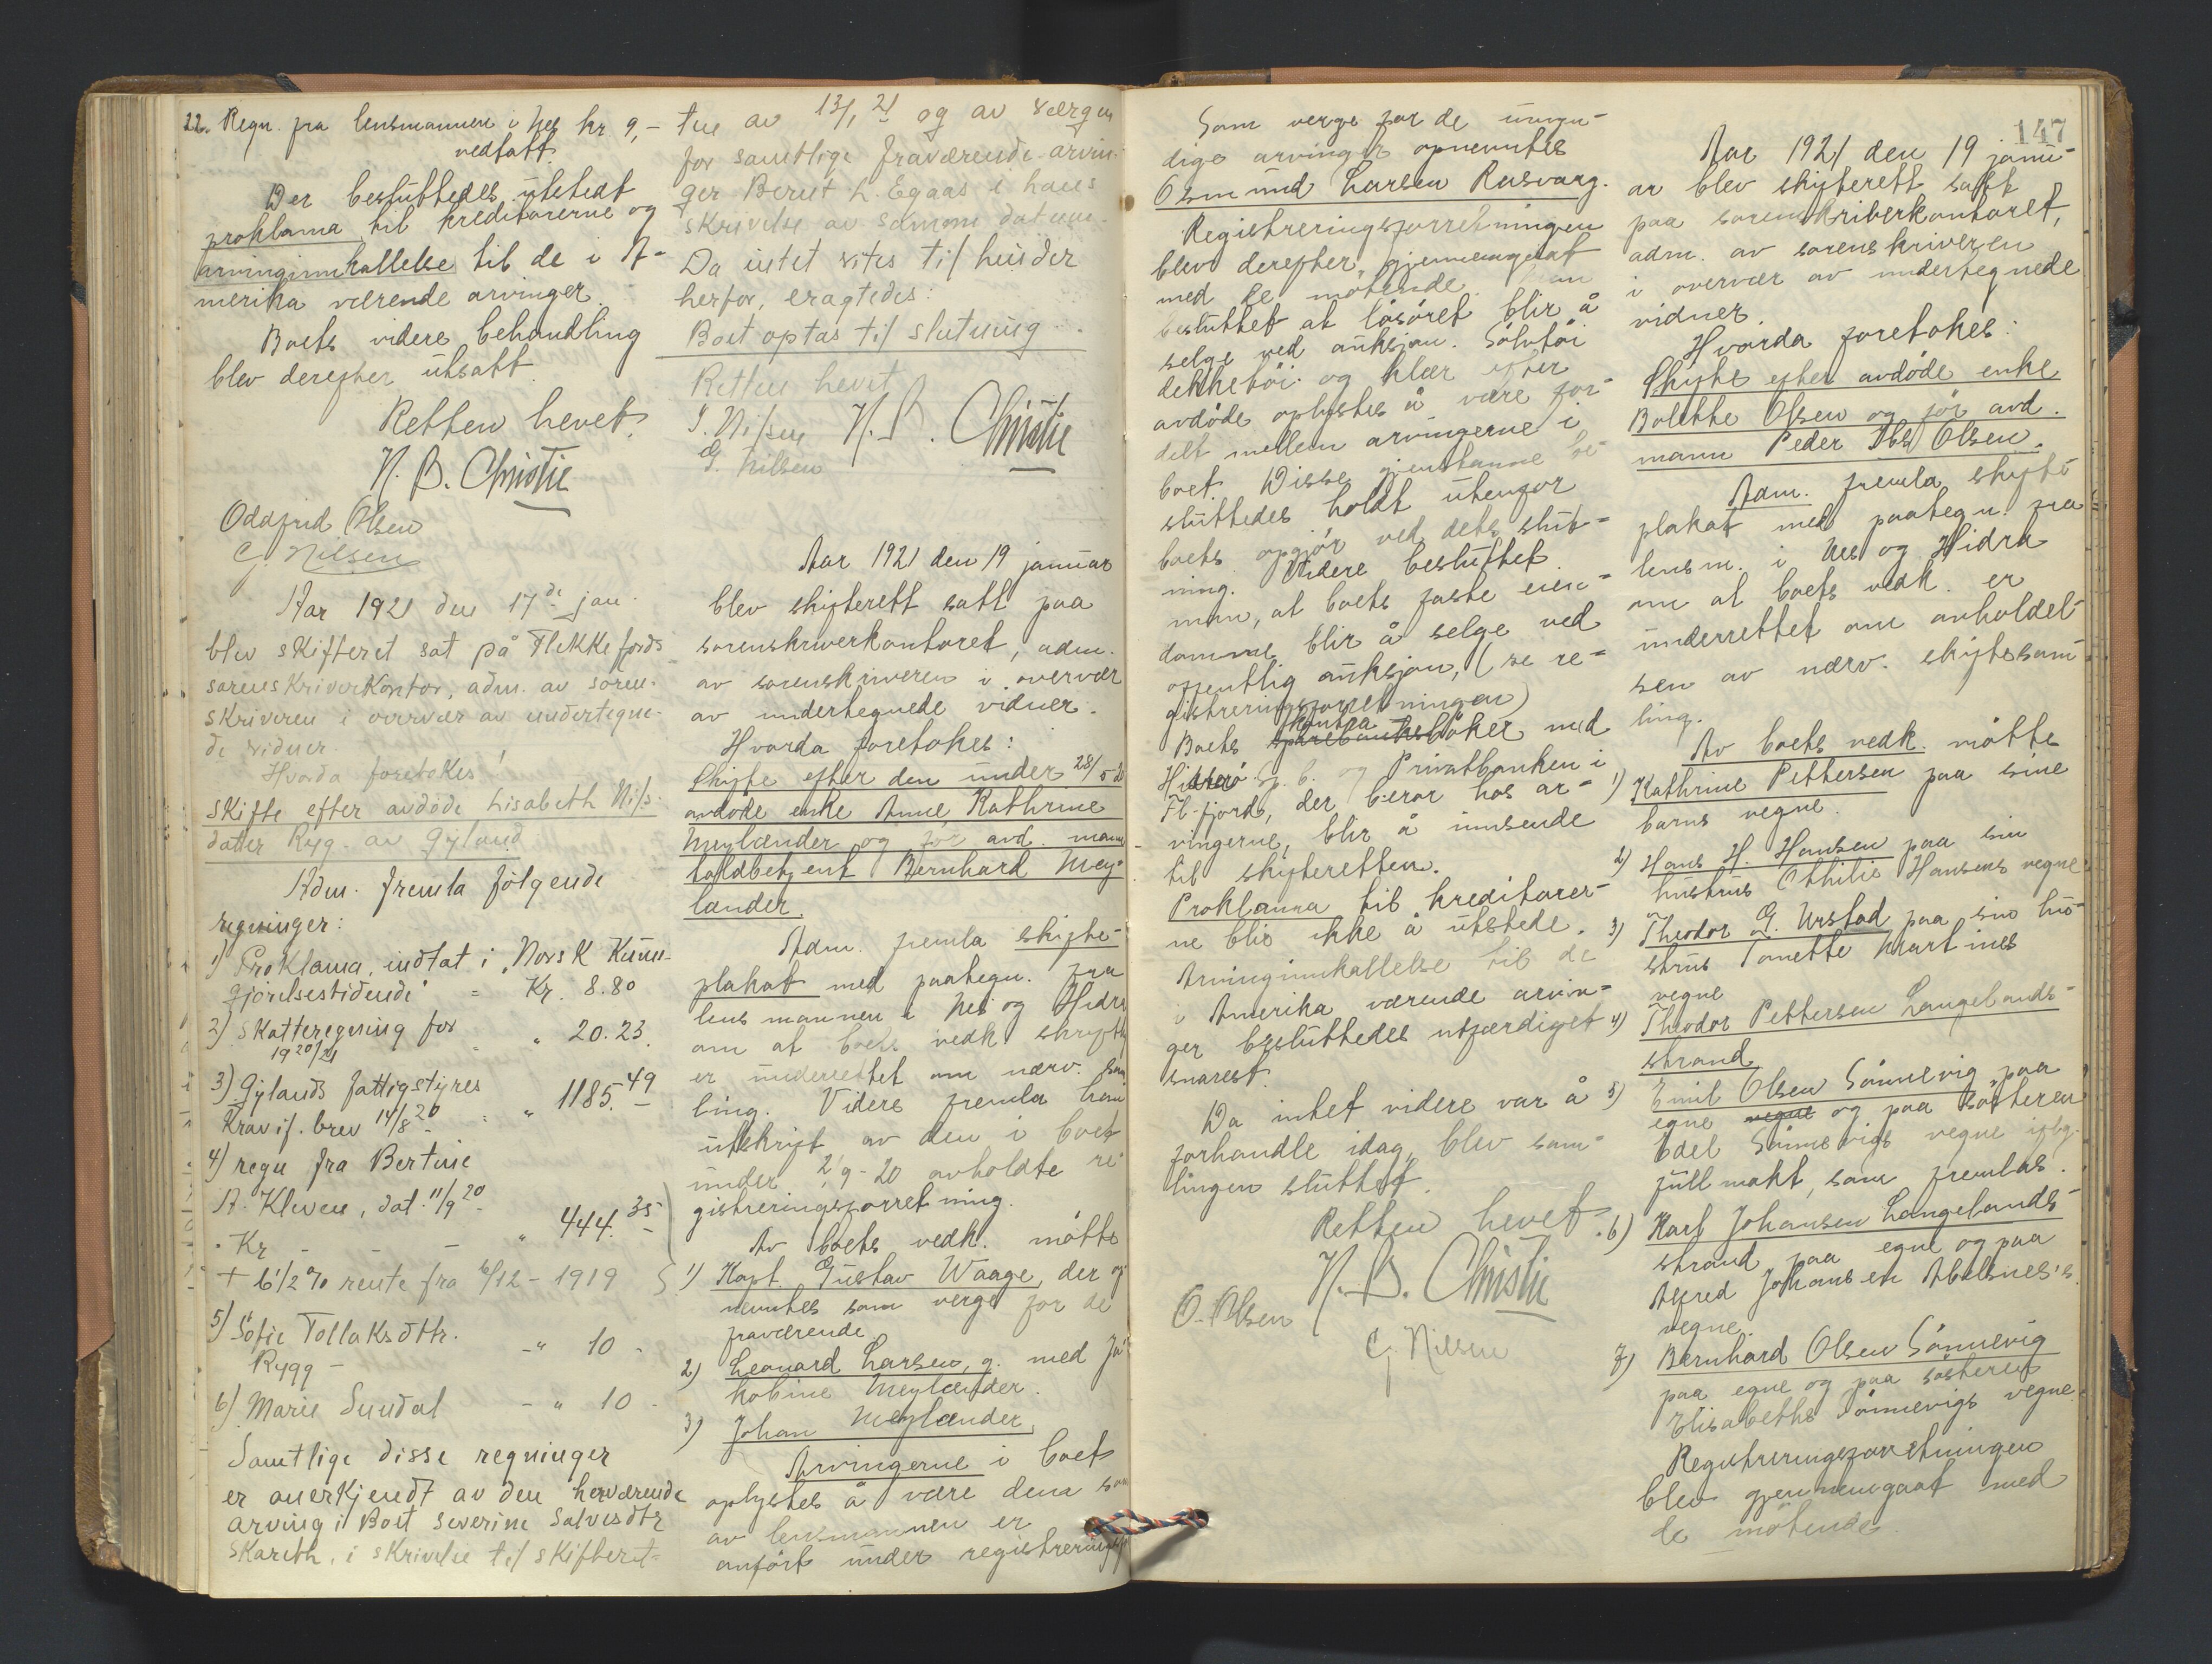 22. Regn. fra lensmannen i Nes kr 9,-
vedtatt.
Der besluttedes utstedt
proklama til kreditorerne og
arvinginnkallelse til de i A-
merika værende arvinger.
Boets videre behandling
blev derefter utsatt.
Retten hevet.
N. B. Christie
Oddfrid Olsen
G. Nilsen
Aar 1921 den 17de jan.
blev skifteret sat på Flekkefjords
sorenskriverkontor, adm. av soren-
skriveren i overvær av undertegne-
de vidner.
Hvorda foretokes!
Skifte efter avdøde Lisabeth Nils-
datter Ryg. av Gyland
Adm. fremla følgende
regninger:
1) Proklama, indtat i "Norsk Kunn-
gjørelsestidende" = Kr. 8.80
2) Skatteregning for
1920/21 - " 20.23.
3) Gylands fattigstyres
Krav if. brev 14/8 20 - " 1185.49
4) regn fra Bertine
A. Kleven, dat. 11/9 20
. Kr - - " 444.35
+ 6 1/2 % rente fra 6/12 - 1919
5) Sofie Tollaksdttr.
Rygg - -" 10 -
6) Marie Sundal - " 10 -
Samtlige disse regninger
er anerkjendt av den herværende
arving i Boet Severine Salvesdtr
Skareth, i skrivelse til skifteret-
ten av 13/1 21 og av værgen
for samtlige fraværende arvin-
ger Berent L. Egaas i hans
skrivelse av samme datum.
Da intet vites til hinder
herfor, eragtedes:
Boet optas til slutning.
Retten hevet
J. Nilsen N. B. Christie
G. Nilsen
Aar 1921 den 19 januar
blev skifterett satt paa
sorenskriverkontoret, adm.
av sorenskriveren i overvær
av undertegnede vidner.
Hvorda foretokes:
Skifte efter den under 28/5 20
avdøde enke Anne Kathrine
Meylænder og før avd. mann
toldbetjent Bernhard Mey-
lænder.
Adm. fremla skifte-
plakat med paategn. fra
lensmannen i Nes og Hidra
om at boets vedk skriftl
er underrettet om nærv. sam
ling. Videre fremla han
utskrift av den i boet
under 2/9-20 avholdte re-
gistreringsforretning.
Av boets vedk. møtte
1) Kapt. Gustav Waage, der op
nevntes som verge for de
fraværende
2) Leonard Larsen, g. med Ja-
kobine Meylænder.
3) Johan Meylænder
Arvingerne i boet
oplystes å være dem som
av lensmannen er
anført under registreringsf
Som verge for de umyn-
dige arvinger opnevntes
Osmund Larsen Rasvaag.
Registreringsforretningen
blev derefter gjennemgaat
med de møtende.
besluttet at løsøret blir å
selge ved auksjon. Sølvtøi
dekketøi og klær efter
avdøde oplystes å være for-
delt mellem arvingerne i
boet. Disse gjenstanne be-
sluttedes holdt utenfor
boets opgjør ved dets slut-
ning. Videre besluttet
man, at boets faste eien-
domme blir å selge ved
offentlig auksjon, (se re-
gistreringsforretningen)
kontra
Boets sparebankbøker med
Hitterø Sp. b. og Privatbanken i
Fl-fjord, der beror hos ar-
vingerne, blir å innsende
til skifteretten.
Proklama til kreditorer-
ne blir ikke å utstede.
Arvinginnkallelse til de
i Amerika værende arvin-
ger besluttedes utfærdiget
snarest.
Da intet videre var å
forhandle idag, blev sam-
lingen sluttet.
Retten hevet.
N. B. Christie
O. Olsen
G. Nilsen
147
Aar 1921 den 19 janu-
ar blev skifterett satt
paa sorenskriverkontoret,
adm. av sorenskriveren
i overvær av undertegnede
vidner.
Hvorda foretokes:
Skifte efter avdøde enke
Bolette Olsen og før avd.
mann Peder Olsen.
Adm. fremla skifte
plakat med paategn. fra
lensm. i Nes og Hidra
om at boets vedk. er
underrettet om avholdel-
sen av nærv. skiftesam-
ling.
Av boets vedk. møtte
1) Kathrine Pettersen paa sine
barns vegne.
2) Hans H. Hansen paa sin
hustrus Othilie Hansens vegne.
3) Theodor G. Urstad paa sin hu-
strus Tonette Martines
vegne
4) Theodor Pettersen Langelands-
strand
5) Emil Olsen Sønnevig paa
egne vegne og paa søsteren
Edel Sønnevigs vegne iflg.
fullmakt, som fremlas.
6) Karl Johansen Langelands-
strand paa egne og paa
Alfred Johansen Abelsnes's
vegne.
7) Bernhard Olsen Sønnevig
paa egne og paa søsteren
Elisabeths Sønnevigs vegne.
Registreringsforretningen
blev gjennemgaat med
de møtende.